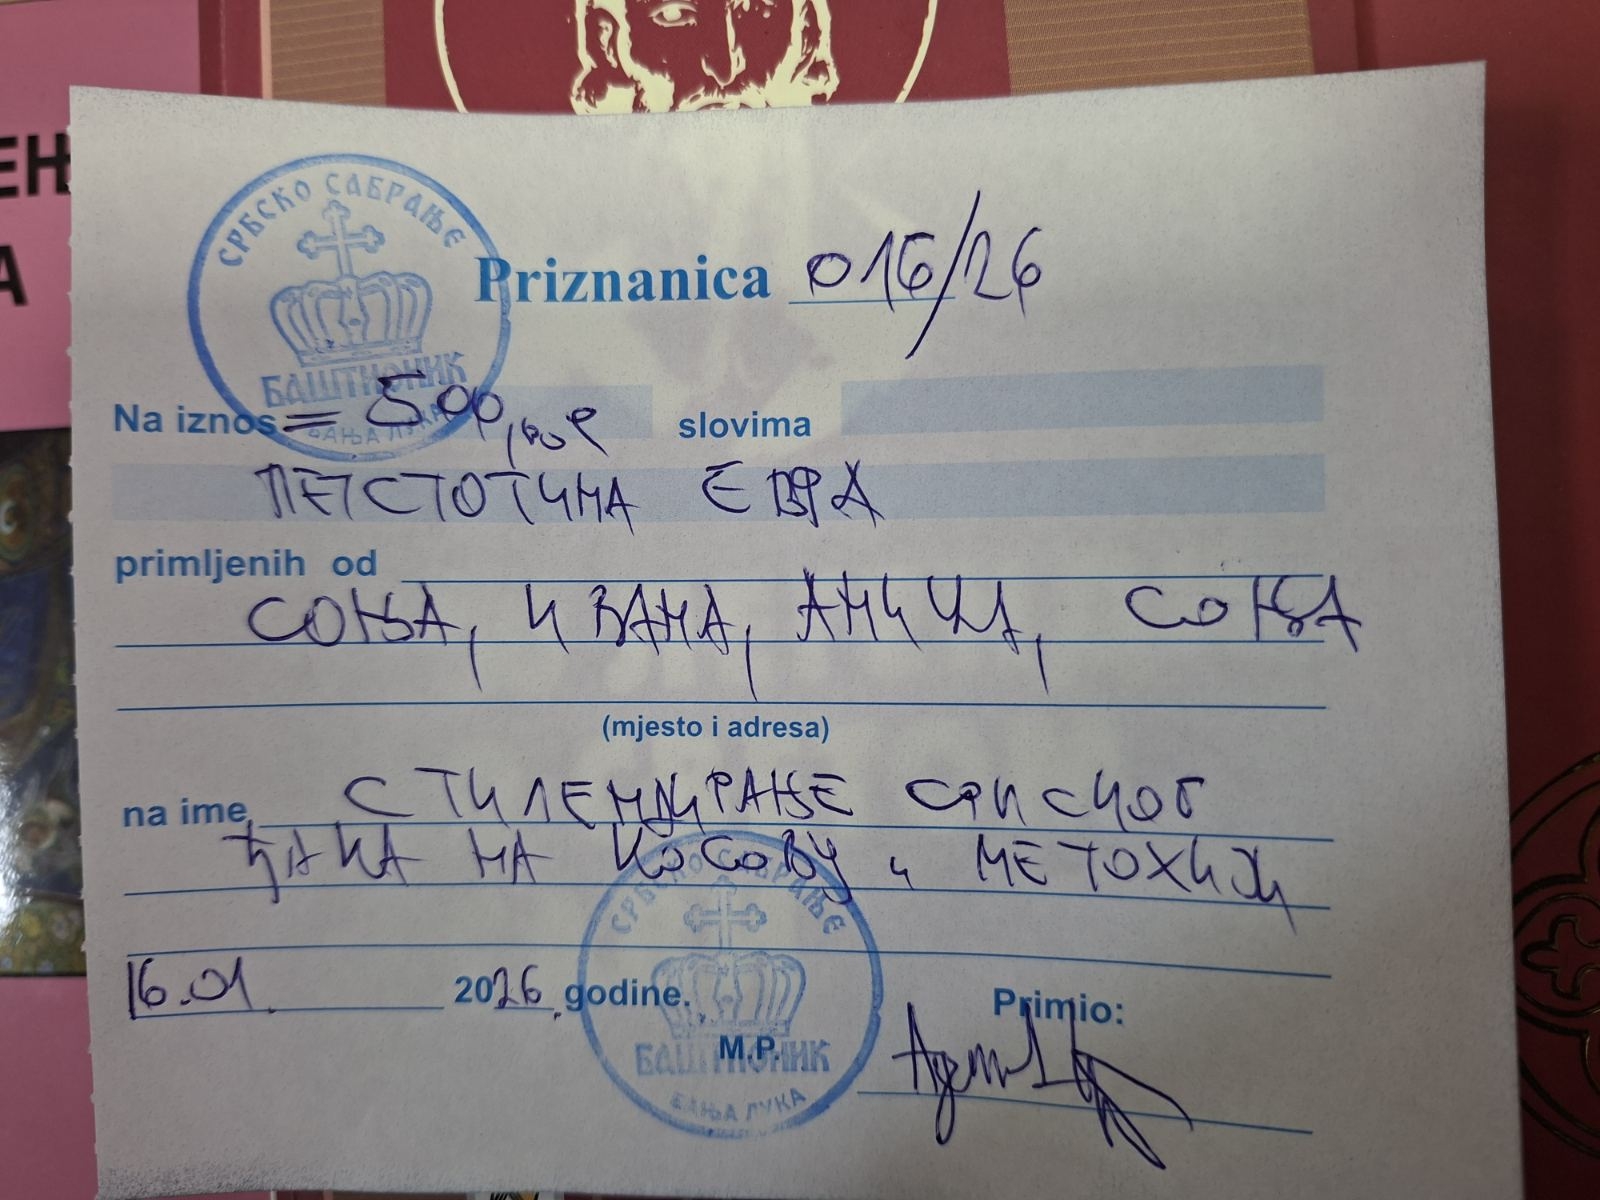 ЕЊ
А
СРБСКО САБРАЊЕ
БАШТИОНИК
БАЊА ЛУКА
Priznanica 016/26
Na iznos = 500,00 € slovima
ПЕТСТОТИНА ЕВРА
primljenih od
СОЊА, ИВАНА, АНИЦА, СОЊА
(mjesto i adresa)
na ime СТИПЕНДИРАЊЕ СРПСКОГ
ЂАКА НА КОСОВУ И МЕТОХИЈИ
16.01. 2026. godine.
Primio:
СРБСКО САБРАЊЕ
M.P.
БАШТИОНИК
БАЊА ЛУКА